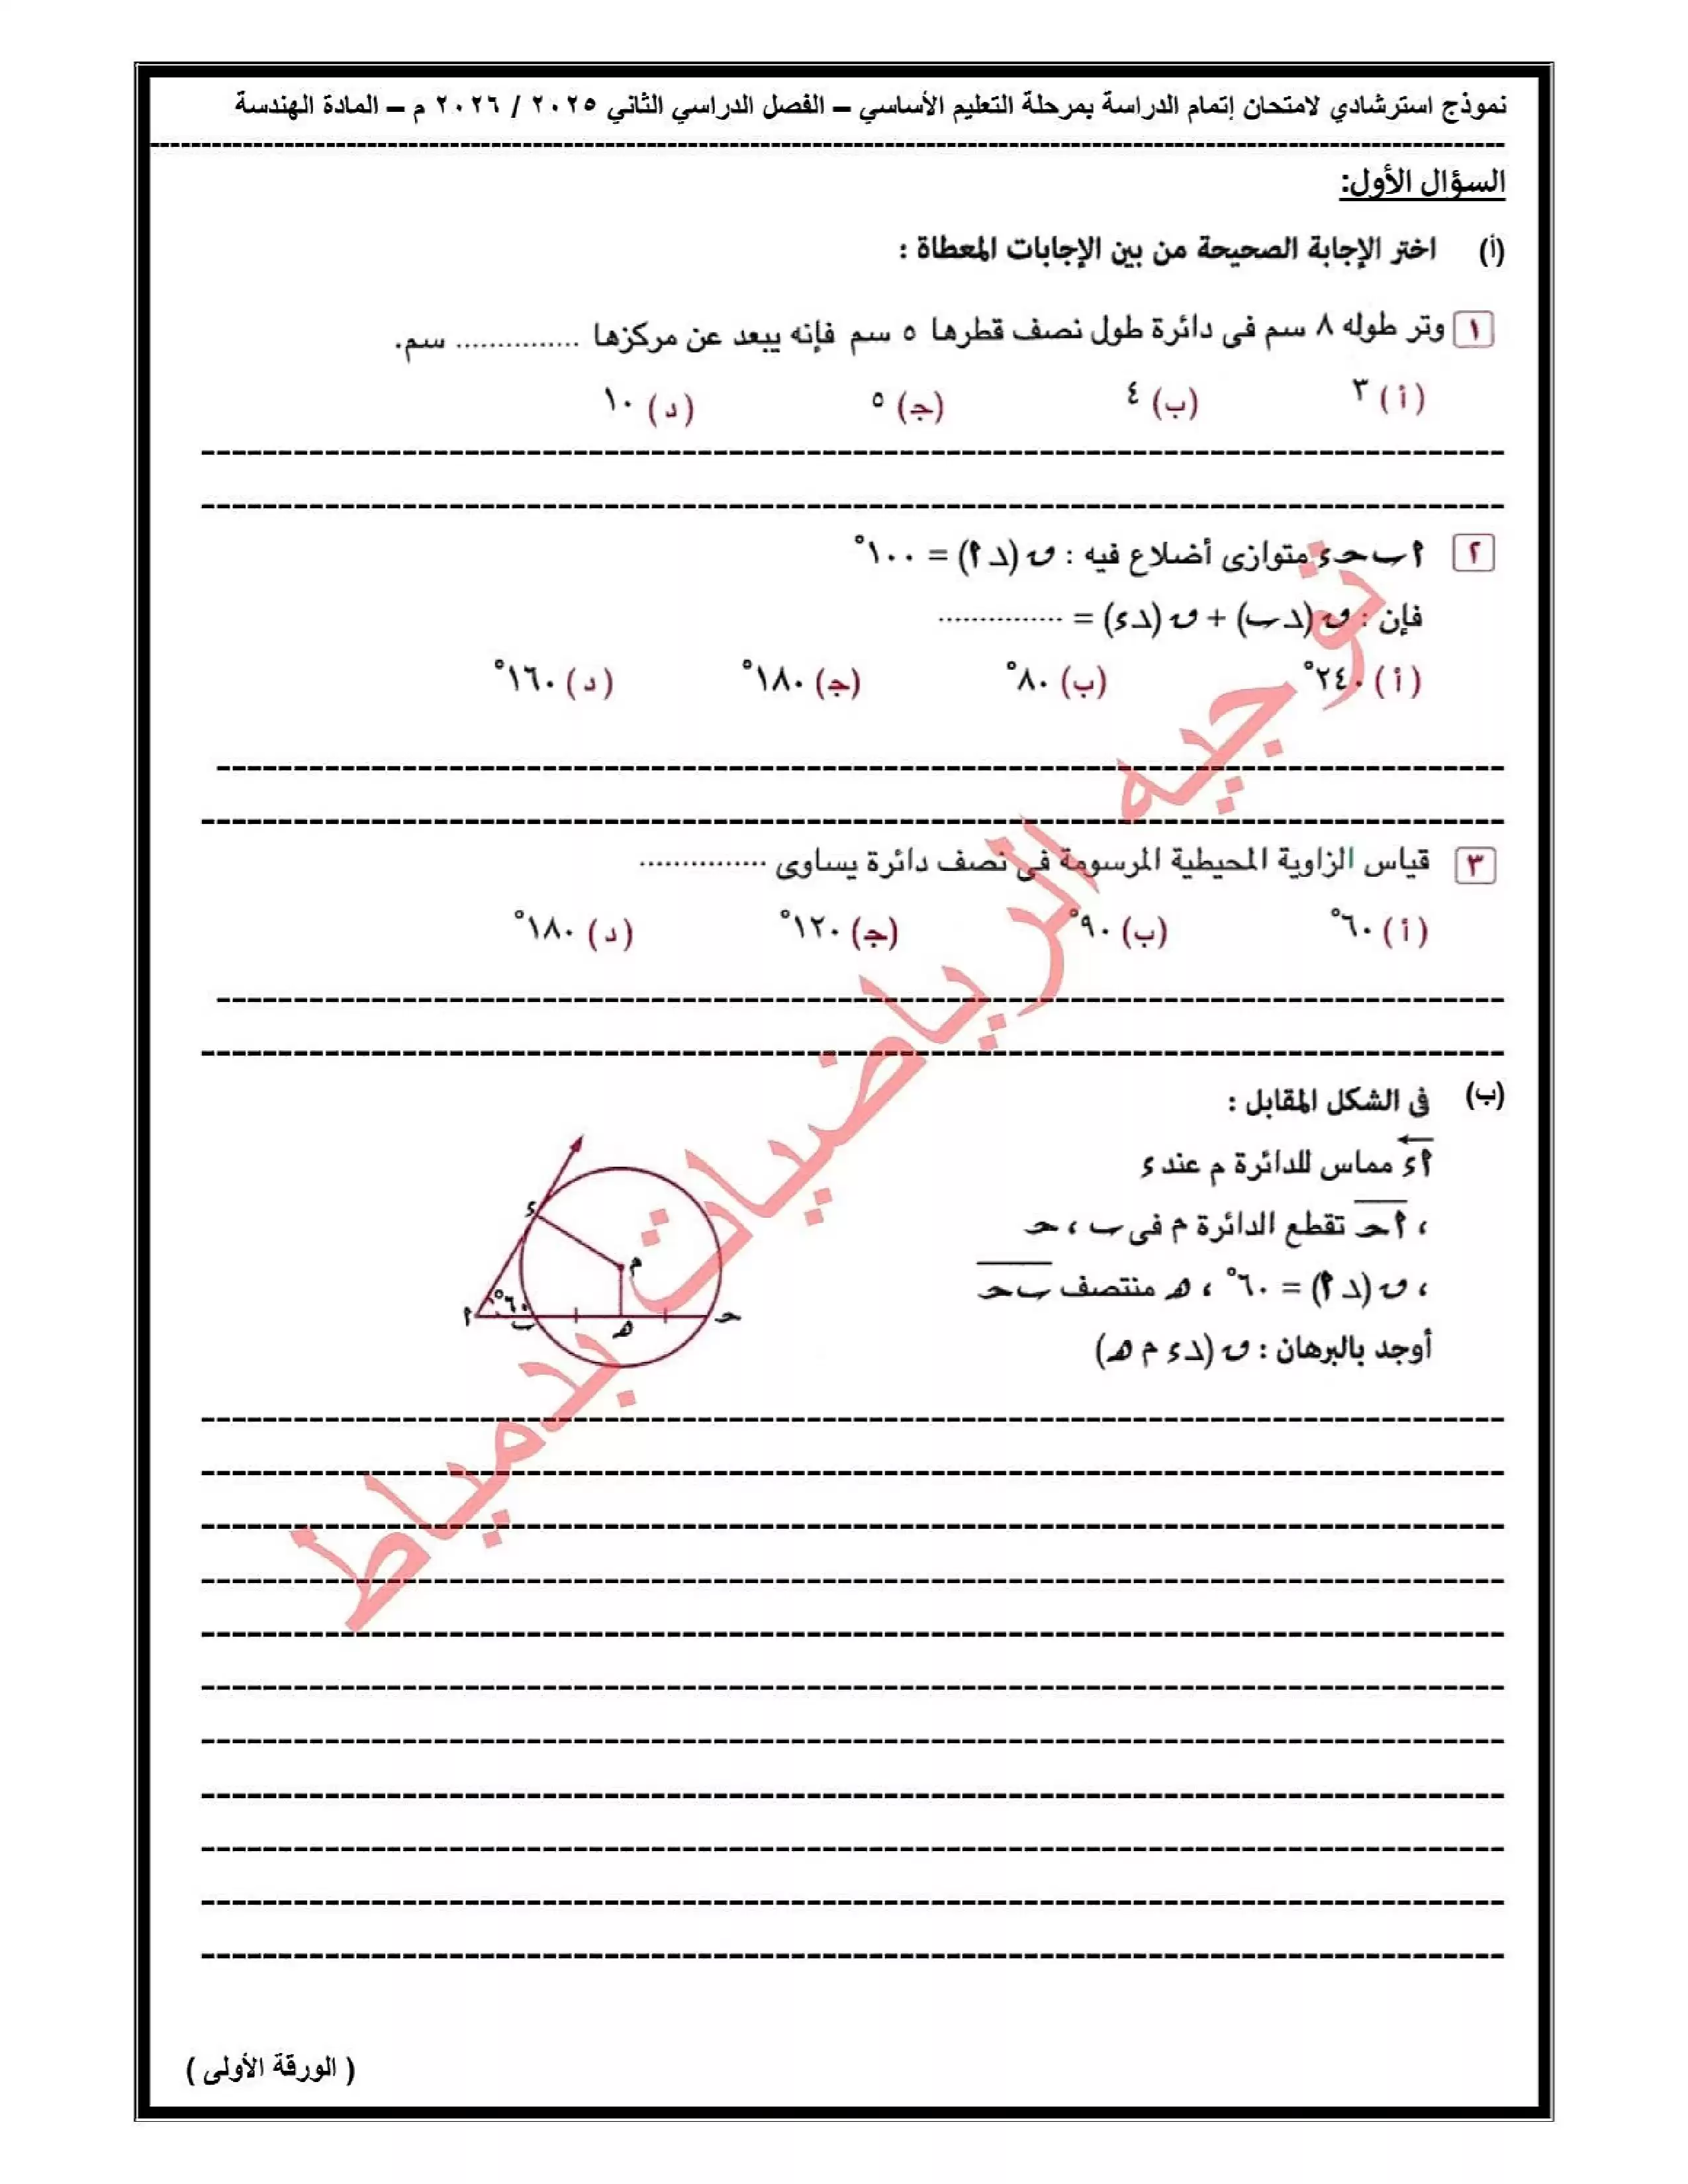 نموذج استرشادي لامتحان إتمام الدراسة بمرحلة التعليم الأساسي – الفصل الدراسي الثاني ٢٠٢٥ / ٢٠٢٦ م – المادة الهندسة
السؤال الأول:
(أ) اختر الإجابة الصحيحة من بين الإجابات المعطاة :
١ وتر طوله ٨ سم فى دائرة طول نصف قطرها ٥ سم فإنه يبعد عن مركزها ............... سم.
(أ) ٣ (ب) ٤ (ج) ٥ (د) ١٠
٢ ا ب حـ ء متوازى أضلاع فيه : ق (د ا) = ١٠٠°
فإن : ق (د ب) + ق (د ء) = ...............
(أ) ٢٤٠° (ب) ٨٠° (ج) ١٨٠° (د) ١٦٠°
٣ قياس الزاوية المحيطية المرسومة فى نصف دائرة يساوى ...............
(أ) ٦٠° (ب) ٩٠° (ج) ١٢٠° (د) ١٨٠°
(ب) فى الشكل المقابل :
ا ء مماس للدائرة م عند ء
، ا حـ تقطع الدائرة م فى ب ، حـ
، ق (د ا) = ٦٠° ، هـ منتصف ب حـ
أوجد بالبرهان : ق (د ء م هـ)
ء
م
ا
٦٠°
ب
هـ
حـ
توجيه الرياضيات بدمياط
( الورقة الأولى )